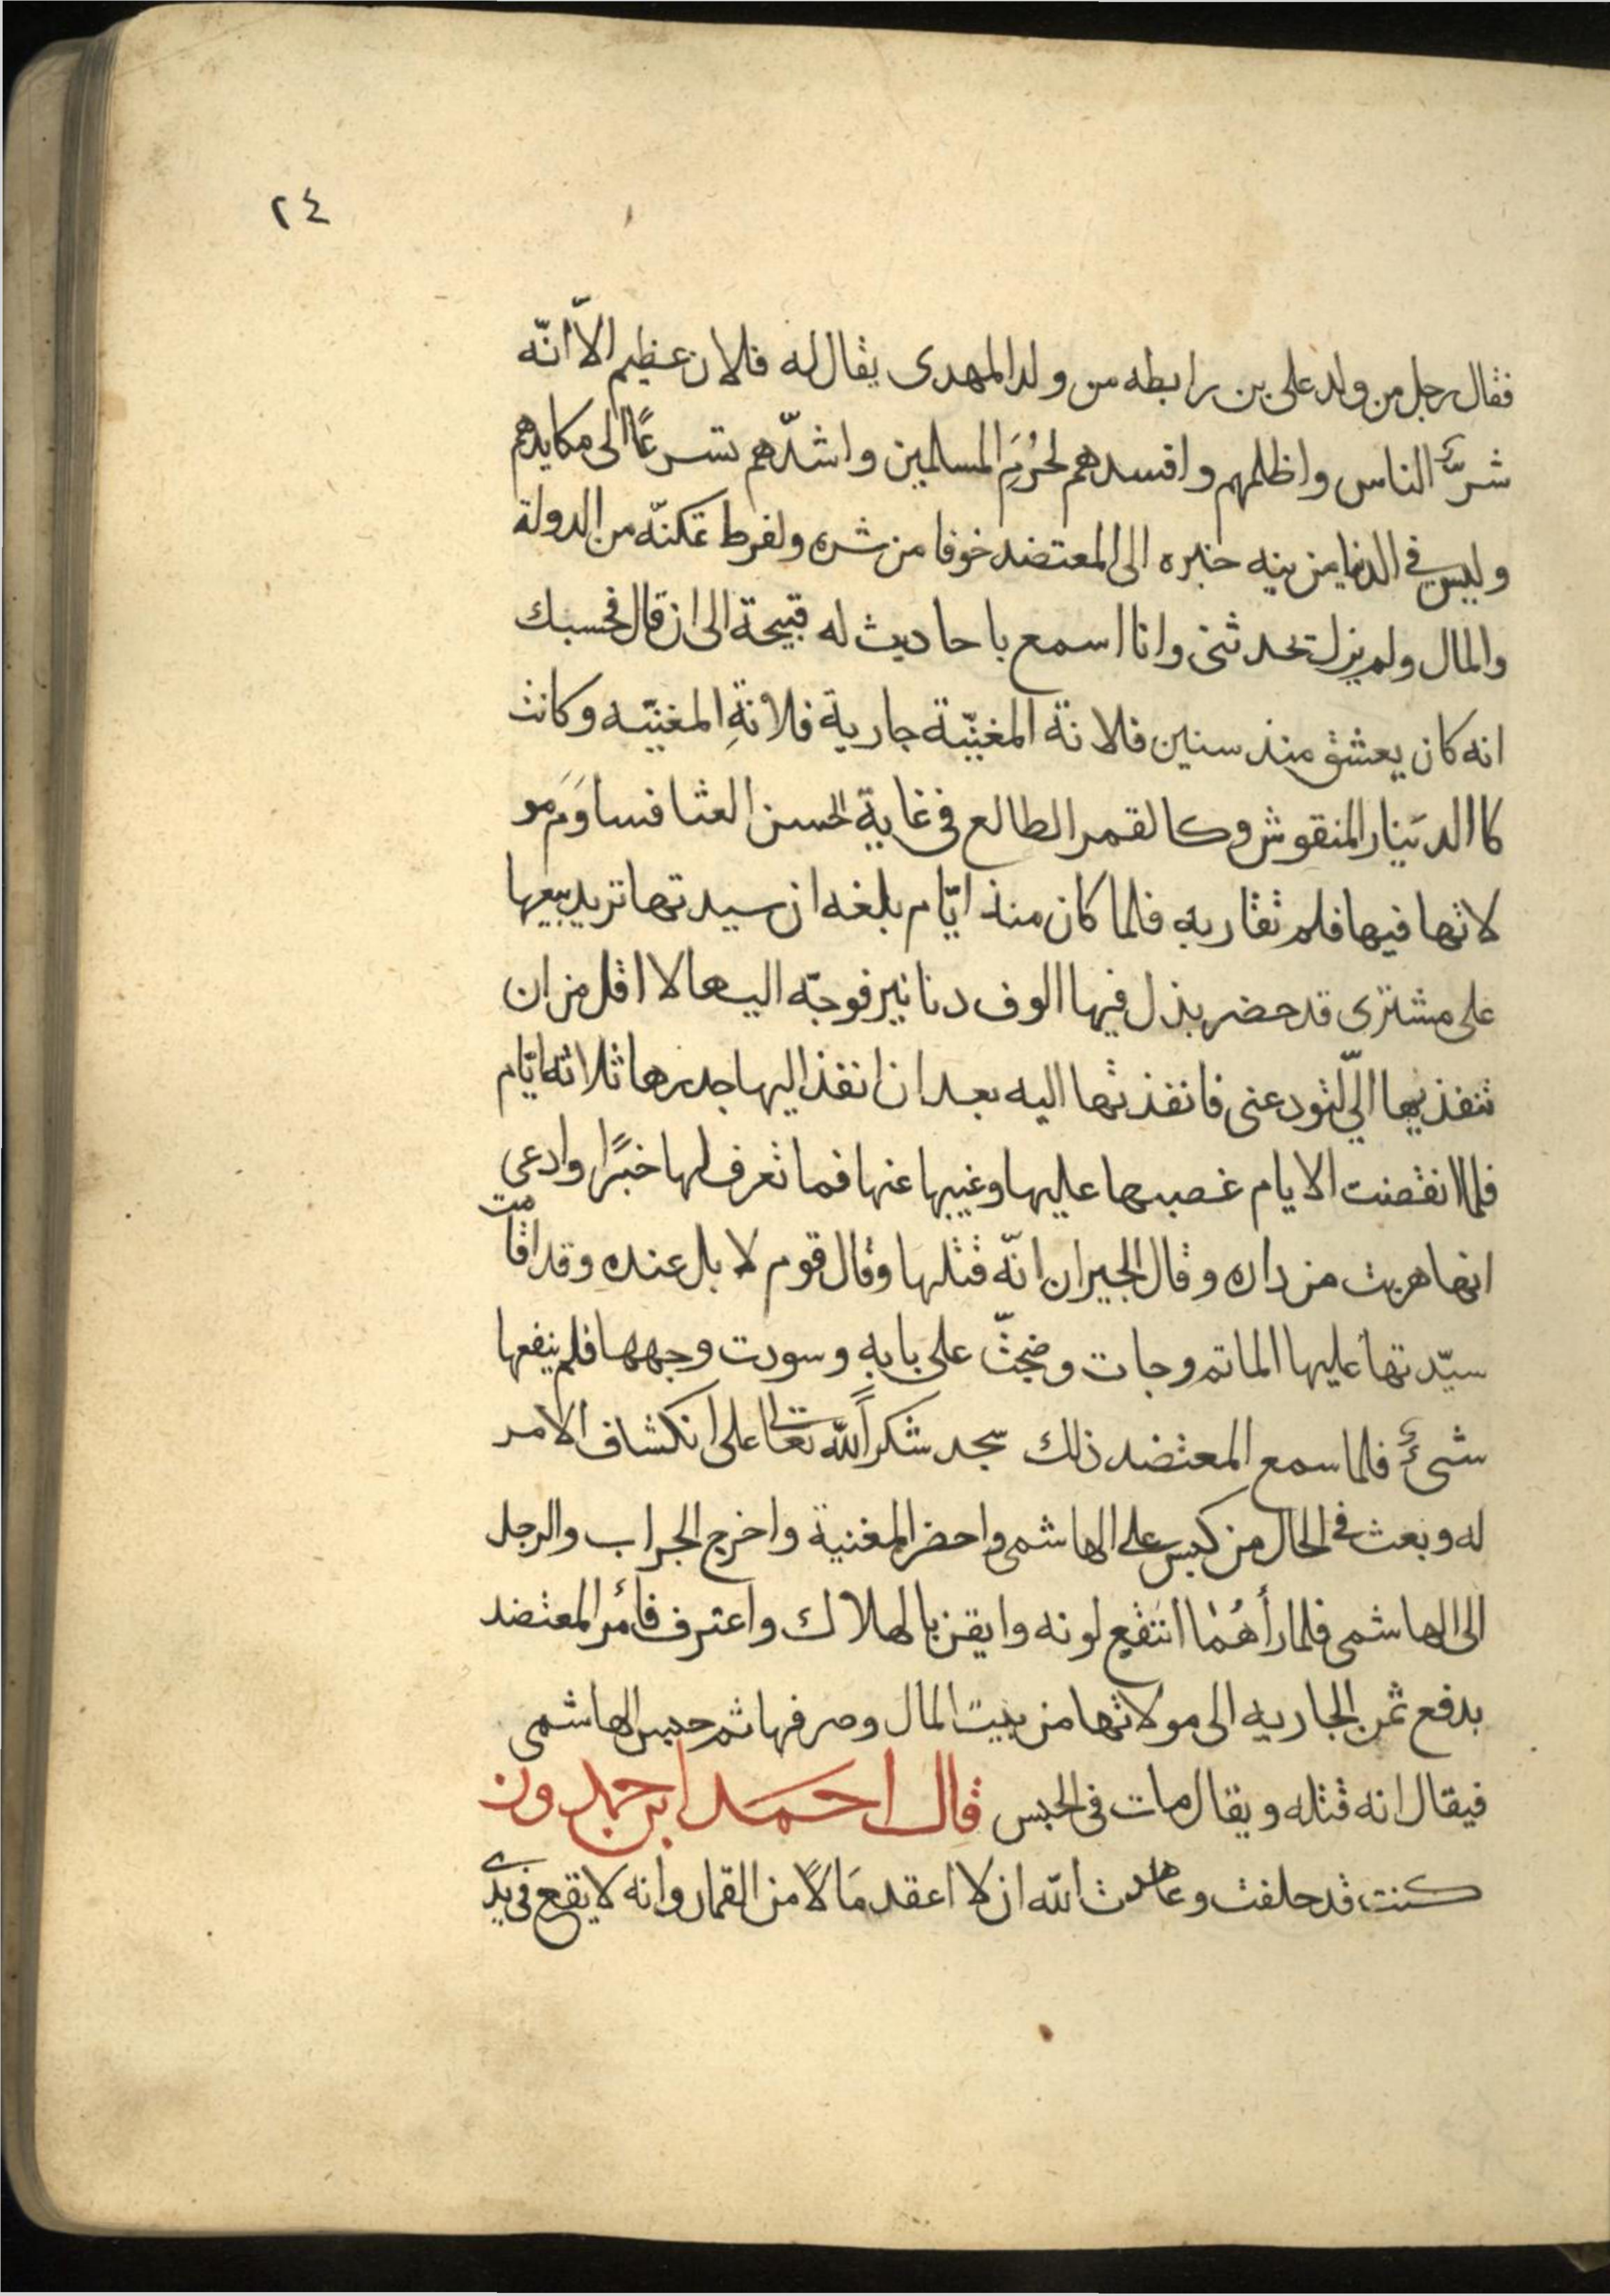 ٢٤
فقال رجل من ولد على بن رابطه من ولد المهدى يقال له فلان عظيم الاّ انّه
شرّ الناس واظلمهم وافسدهم لحُرَمِ المسلمين واشدّهم تسرعًا الى مكايدهم
وليس فى الدنيا من ينيه خبره الى المعتضد خوفا من شره ولفرط تمكنّه من الدولة
والمال ولم يزل تحدثنى وانا اسمع باحاديث له قبيحة الى ان قال فحسبك
انه كان يعشق منذ سنين فلانة المغنيّة جارية فلانةِ المغنيّه وكانت
كاالدينار المنقوش وكالقمر الطالع فى غاية الحسن العثا فساوَم مو
لاتها فيها فلم تقاربه فلما كان منذ ايّام بلغه ان سيدتها تريد بيعها
على مشترى قد حضر بذل فيها الوف دنانير فوجّه اليها لا اقل من ان
تنفذيها الىّ لتودعنى فانفذتها اليه بعد ان انفذ اليها جدرها ثلاثة ايّام
فلما انقضت الايام غصبها عليها وغيبها عنها فما تعرف لها خبرًا وادعى
انها هربت من داره وقال الجيران انّه قتلها وقال قوم لا بل عنده وقد اقامت
سيّدتها عليها الماتم وجات وضجّت على بابه وسودت وجهها فلم ينفعها
شىءٌ فلما سمع المعتضد ذلك سجد شكراً لله تعالى على انكشاف الامر
له وبعث فى الحال من كبس على الهاشمى واحضر المغنية واخرج الجراب والرجل
الى الهاشمى فلما رأهُمَا انتقع لونه وايقن بالهلاك واعترف فأمر المعتضد
بدفع ثمن الجاريه الى مولاتها من بيت المال وصرفها ثم حبس الهاشمى
فيقال انه قتله ويقال مات فى الحبس قال احمد ابن حمدون
كنت قد حلفت وعاهدت الله ان لا اعقد مَالاً من القمار وانه لا يقع فى يدى